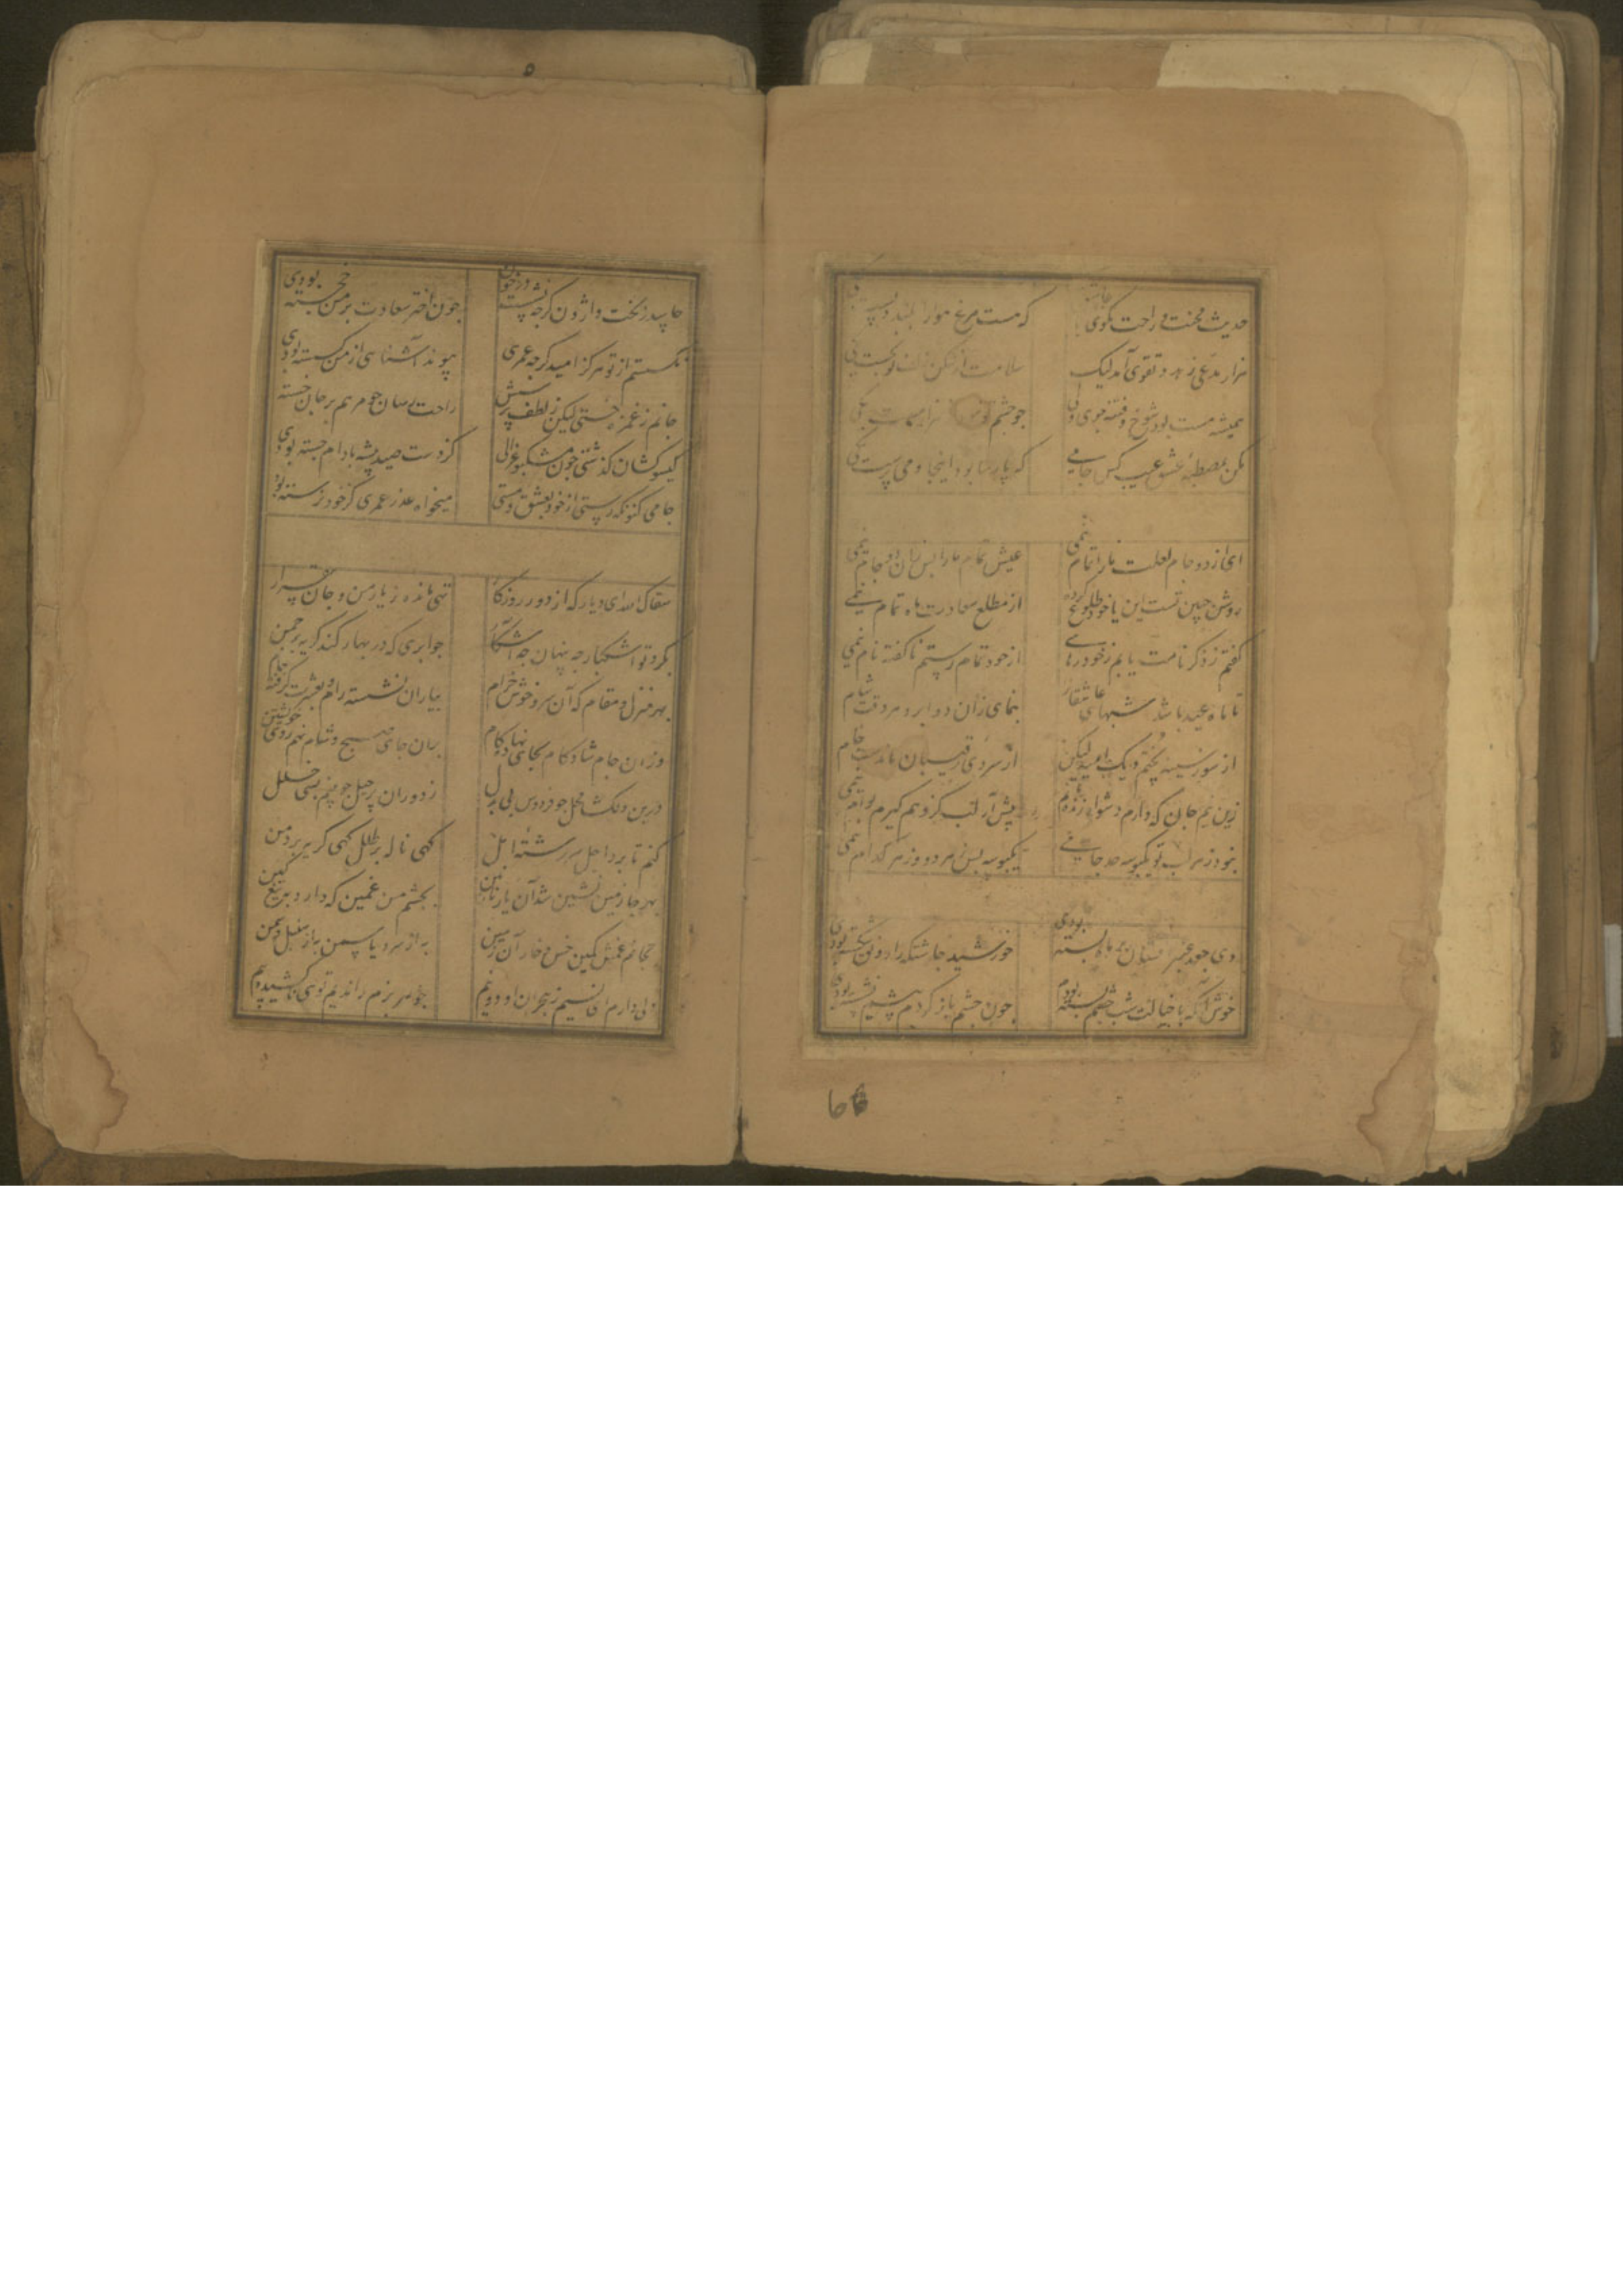 حدیث محنت و راحت مگوی
که هست مرغ هوا را بلند و پست یکی
هزار مدعی زهد و تقوی آمد لیک
سلامت از
همیشه مست بود شوخ و فتنه جوی ولی
چو چشم تو
مکن بمصطبه عشق عیب کس جامی
که پارسا بود اینجا و می پرست یکی
ای از دو جام لعلت ما را تمام نیمی
عیش تمام ما را بس زان دو جام نیمی
روشن جبین تست این یا خود طلوع کرده
از مطلع سعادت ماه تمام نیمی
گفتم ز ذکر نامت یابم ز خود رهایی
از خود تمام رستم ناگفته نام نیمی
تا ماه عید باشد شبهای عاشقان را
بنمای زان دو ابرو هر وقت شام
از سوز سینه پختم دیک امید لیکن
از سردی رقیبان ماندست خام
زین نیم جان که دارم دشوار زنده مانم
پیش آر لب کزو هم گیرم بوام نیمی
نبود ز هر لب تو یکبوسه حد جامی
یکبوسه بس ز هر دو وز هر کدام نیمی
وی جعد عنبر افشان بر ماه بسته بودی
خورشید چاشتگه را رونق شکسته بودی
خوش آنکه با خیالت شب چشم بسته بودم
چون چشم باز کردم پیشم نشسته بودی
جا بد ز بخت واژون گرچه نشست در خون
چون اختر سعادت بر من خجسته بودی
نگسستم از تو هرگز امید گرچه عمری
پیوند آشنایی از من گسسته بودی
جانم ز غمزه خستی لیکن ز لطف پرسش
راحت رسان چو مرهم بر جان خسته
گیسو کشان گذشتی چون مشکبو غزالی
کز دست صید پیشه با دام جسته بودی
جامی کنونکه رستی از خود بعشق و مستی
میخواه عذر عمری کز خود نرسته بودی
سقاک الله ای دیار که از دور روزگار
تهی مانده ز یار من و جان بیقرار
بگرد تو اشکبار چه پنهان چه آشکار
چو ابری که در بهار کند گریه بر چمن
بهر منزل و مقام که آن سرو خوش خرام
بیاران نشسته رام و بعشرت گرفته جام
وزان جام شادکام بجایی نهاده گام
بران جای صبح و شام نهم روی خویشتن
درین دلگشا محل چو فردوس بی بدل
ز دوران پر حیل چو بینم بسی خلل
کنم تا برد اجل سر رشته امل
گهی ناله بر طلل گهی گریه بر دمن
بهر جا زمین نشین شد آن یار نازنین
بچشم من غمین که دارد بریغ کین
بجانم غمش کمین خس و خار آن زمین
به از سرو و یاسمین به از سنبل و سمن
دلی دارم ای نسیم ز هجران او دو نیم
چو بهر بزم را ندیم توی ناکشیده بیم